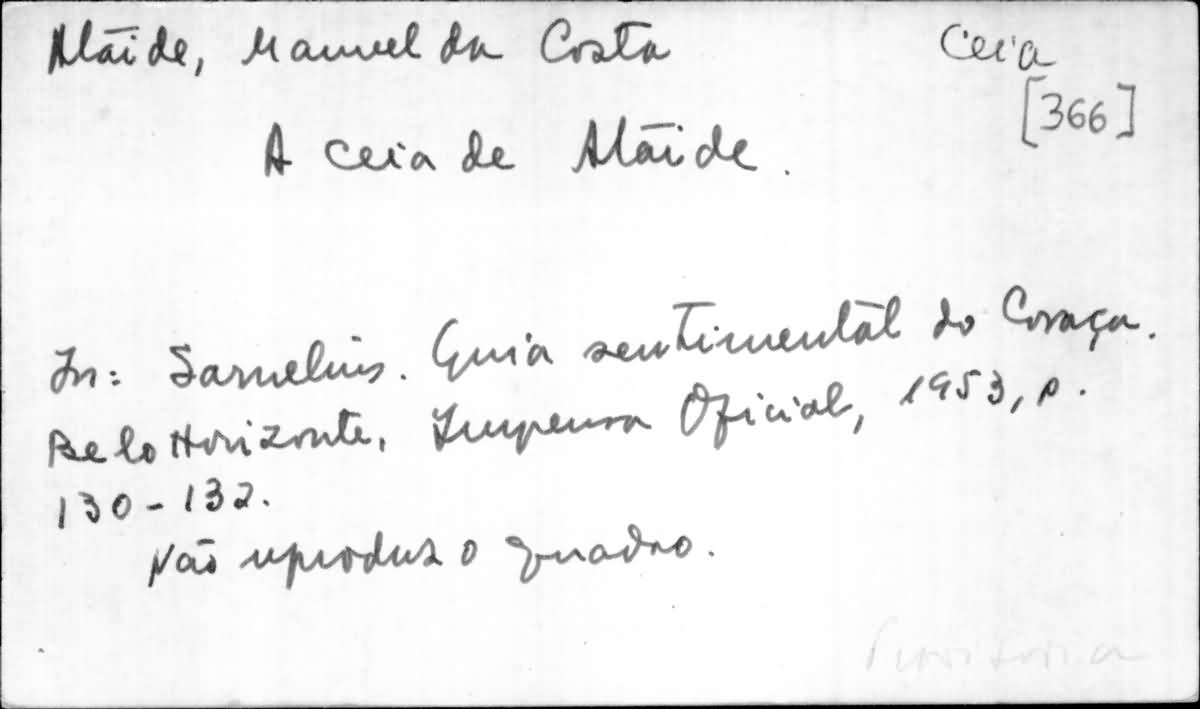 Ataíde, Manuel da Costa
Ceia
[366]
A ceia de Ataíde.
In: Sarnelius. Guia sentimental do Caraça.
Belo Horizonte, Imprensa Oficial, 1953, p.
130-132.
Não reproduz o quadro.